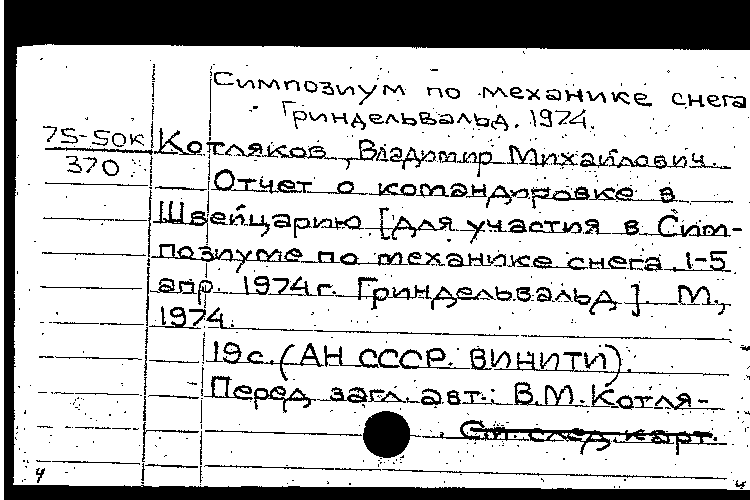 Симпозиум по механике снега
Гриндельвальд. 1974.
75-50к
370
Котляков, Владимир Михайлович.
Отчет о командировке в
Швейцарию [для участия в Сим-
позиуме по механике снега. 1-5
апр. 1974г. Гриндельвальд]. М.,
1974.
19с. (АН СССР. ВИНИТИ).
Перед загл. авт.: В.М. Котля-
См. след. карт.
4